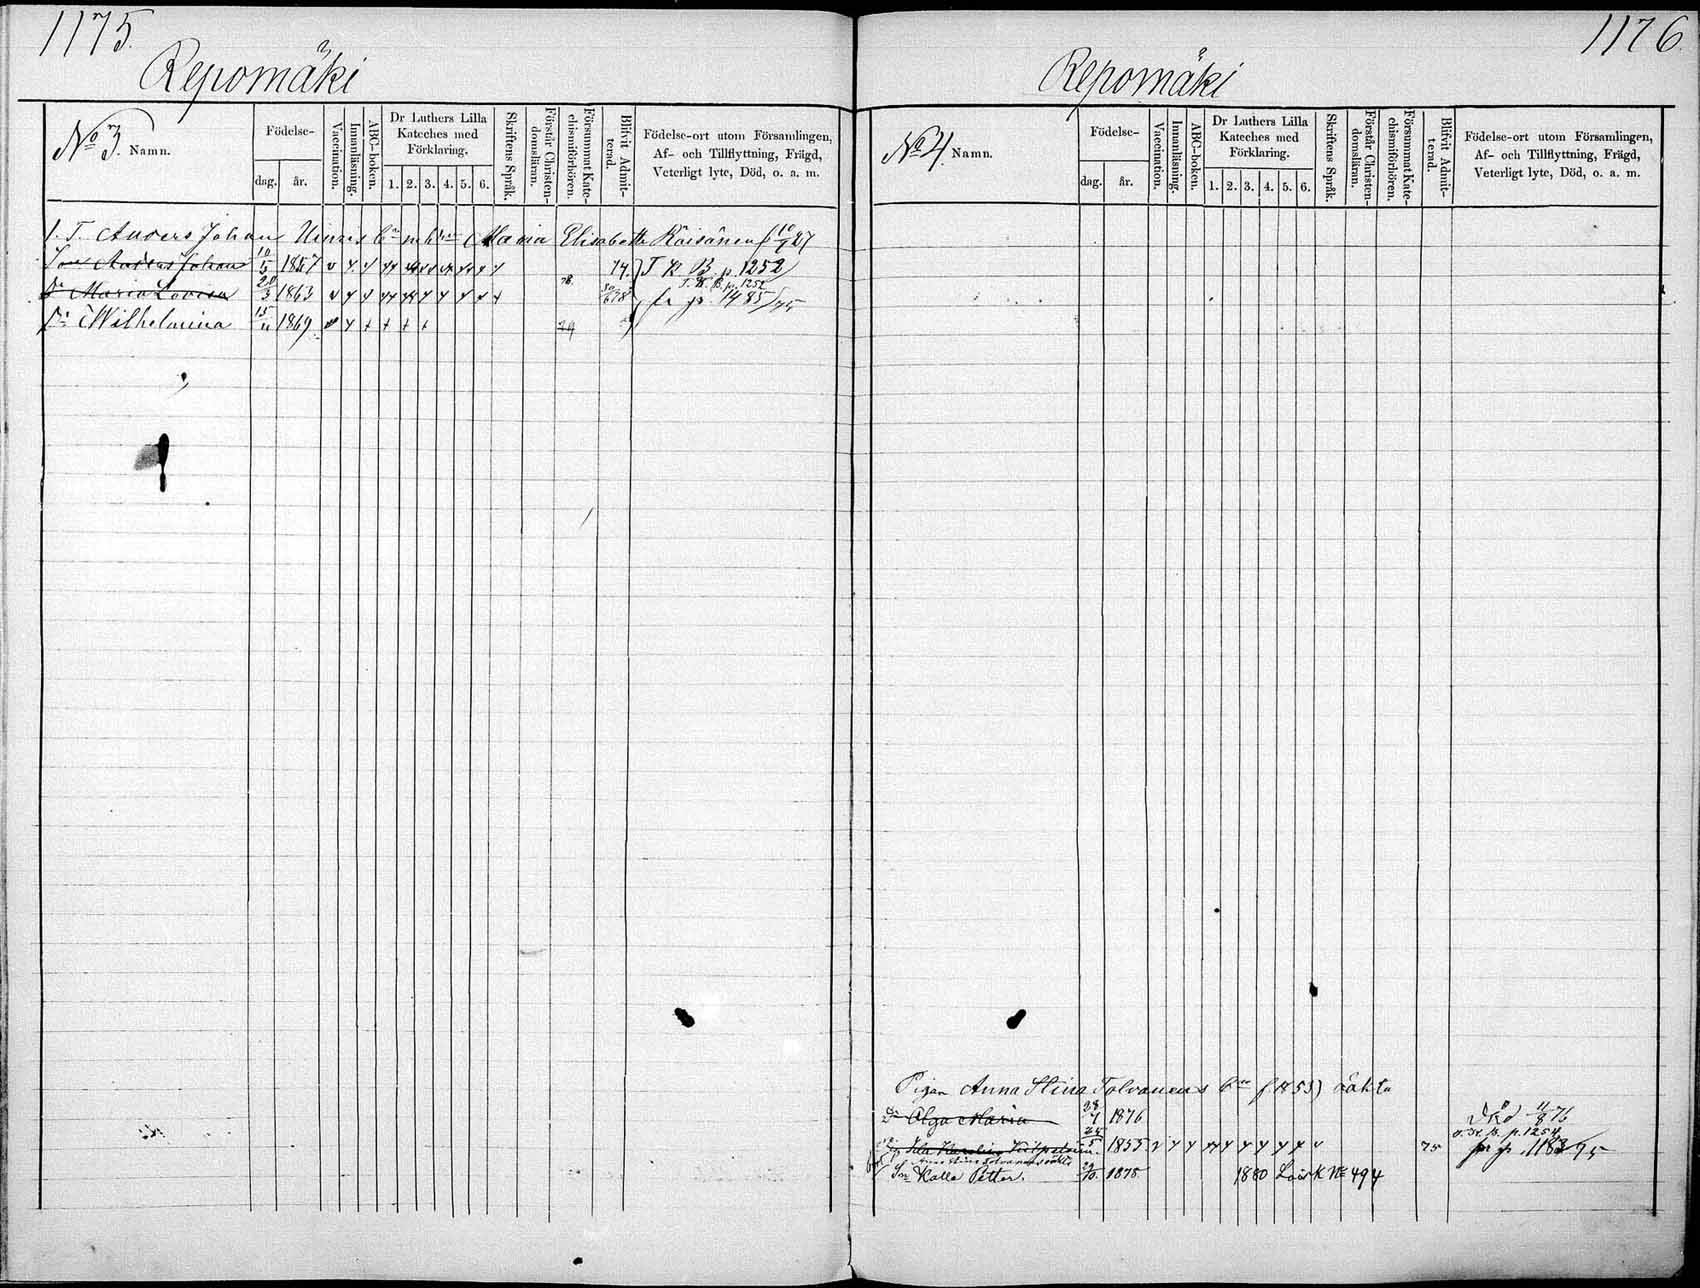 1175.
Repomäki
No 3. Namn.
Födelse-
dag. år.
Vaccination.
Innanläsning.
ABC-boken.
Dr Luthers Lilla
Kateches med
Förklaring.
1. 2. 3. 4. 5. 6.
Skriftens Språk.
Förstår Christen-
domsläran.
Försummat Kate-
chismiförhören.
Blifvit Admit-
terad.
Födelse-ort utom Församlingen,
Af- och Tillflyttning, Frägd,
Veterligt lyte, Död, o. a. m.
Anders Johan Maria Elisabeth Räisänen
Son Anders Johan 10/5 1857 74. T K B. p. 1252
Dr Maria Lovisa 1863 78. T. K. B. p. 1252
fr p. 1485/75
Dr Wilhelmina 15/11 1869
1176
Repomäki
No 4. Namn.
Födelse-
dag. år.
Vaccination.
Innanläsning.
ABC-boken.
Dr Luthers Lilla
Kateches med
Förklaring.
1. 2. 3. 4. 5. 6.
Skriftens Språk.
Förstår Christen-
domsläran.
Försummat Kate-
chismiförhören.
Blifvit Admit-
terad.
Födelse-ort utom Församlingen,
Af- och Tillflyttning, Frägd,
Veterligt lyte, Död, o. a. m.
Pigan Anna Stina Tolvanens
Dr Olga Maria 1876 Död 11/8 76
p. 1254
1855 75 p. 1183/75
Anna Stina Tolvanens
Son Kalle Petter. 1878 1880 No 494